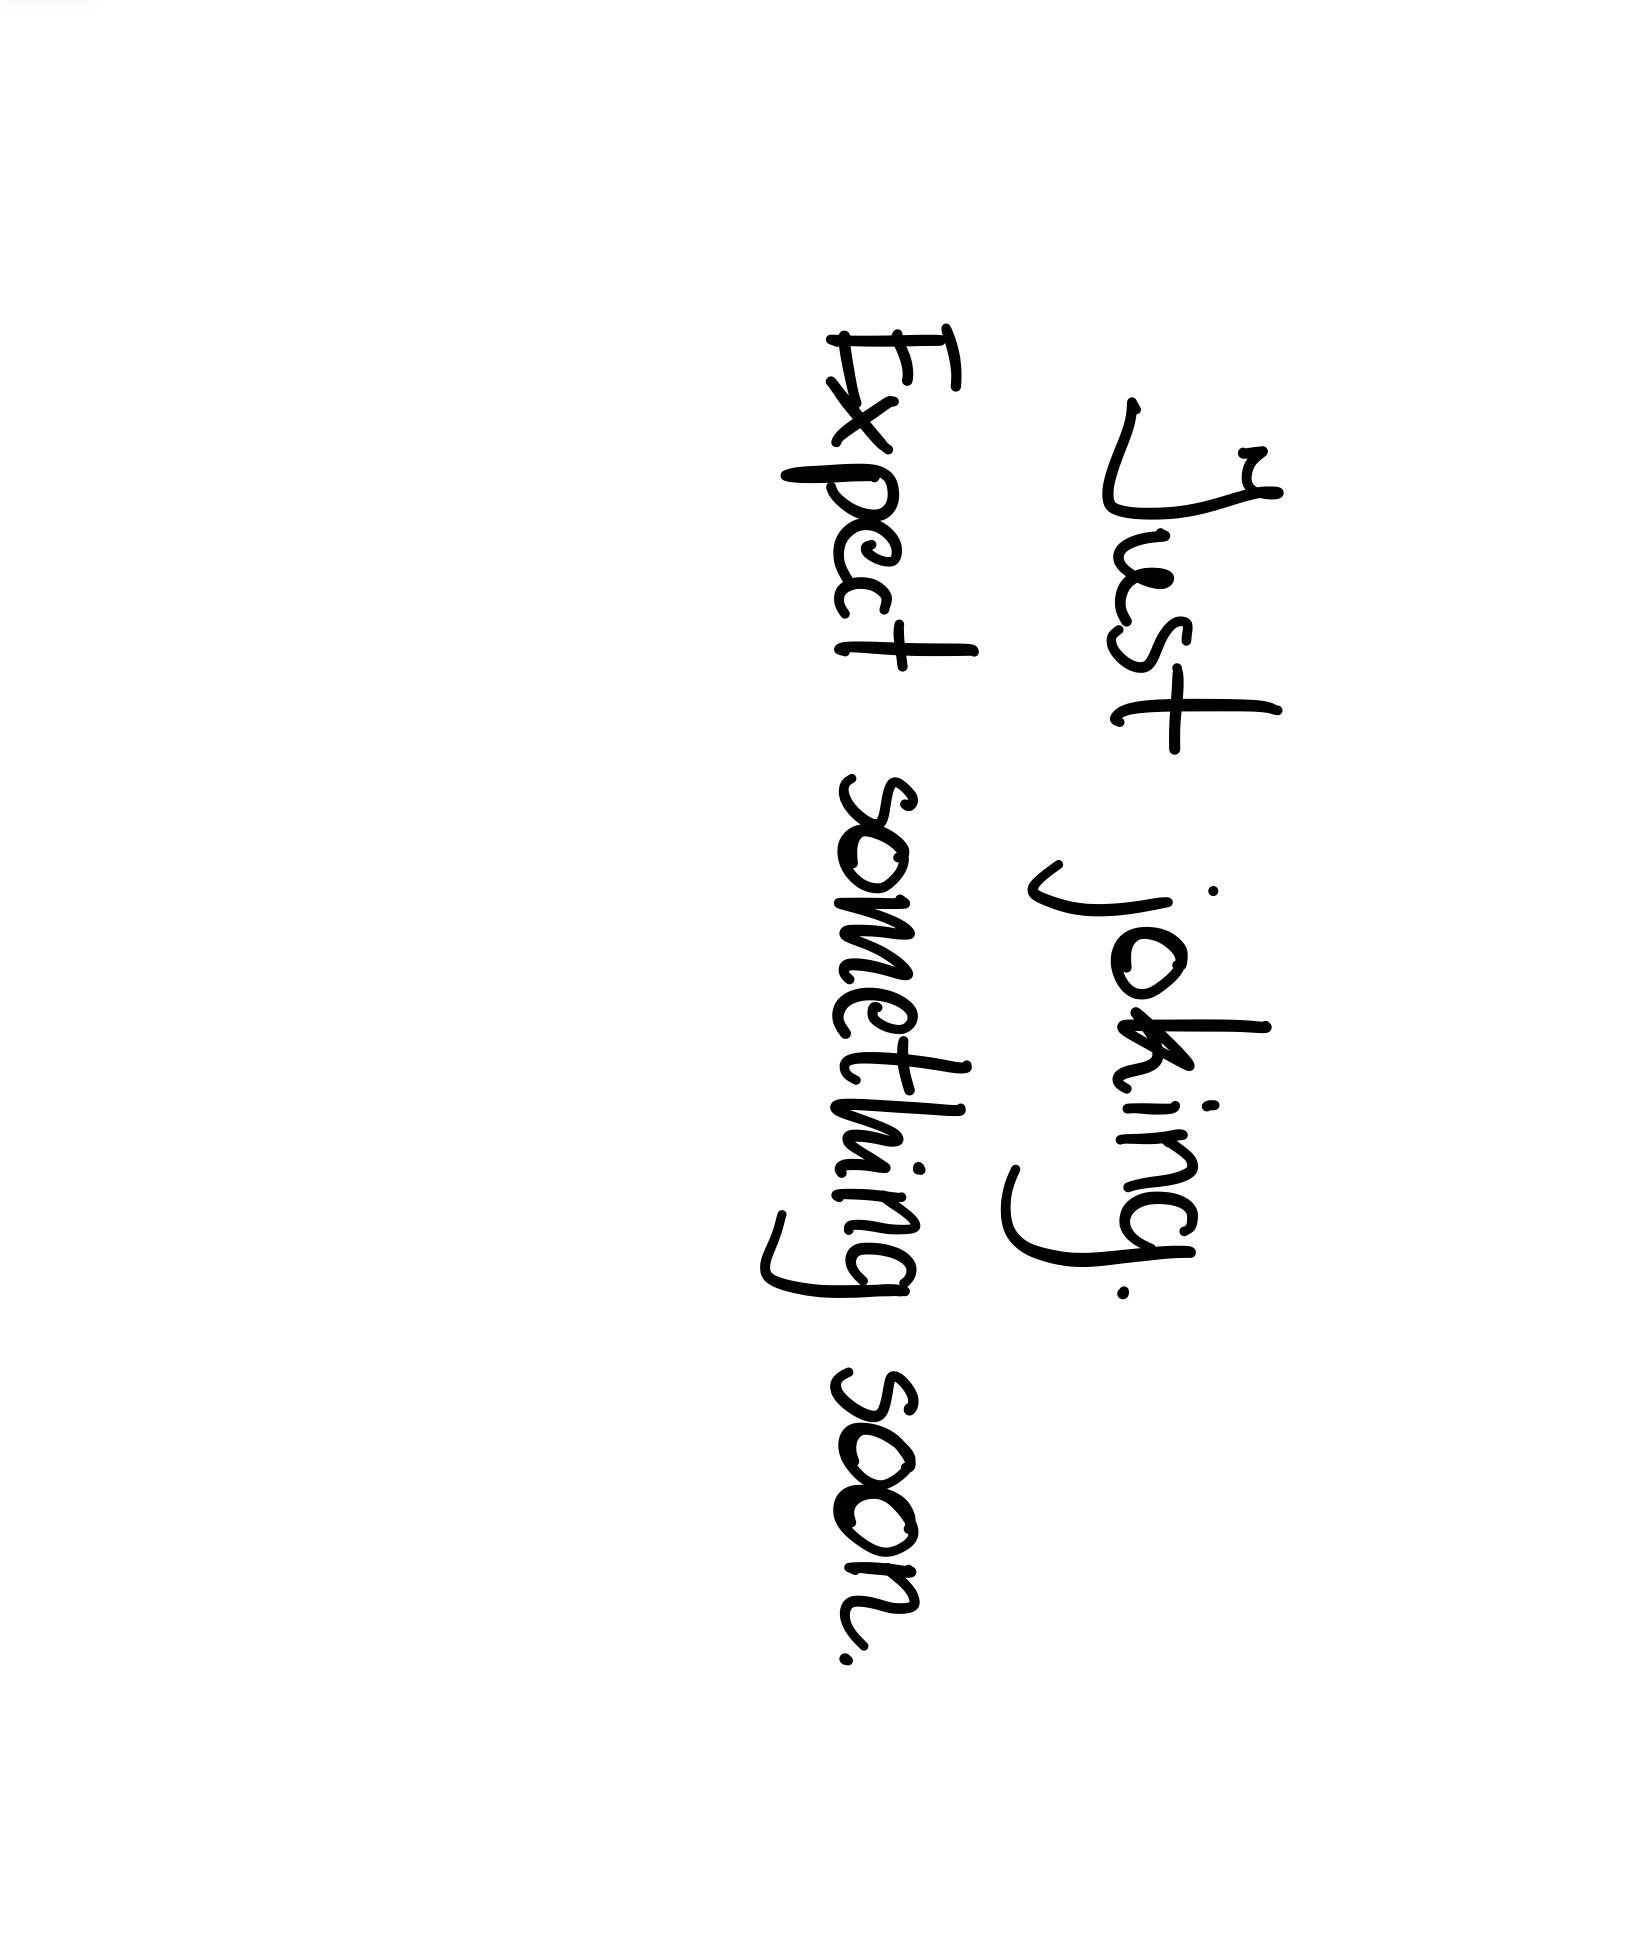 Just joking.
Expect something soon.